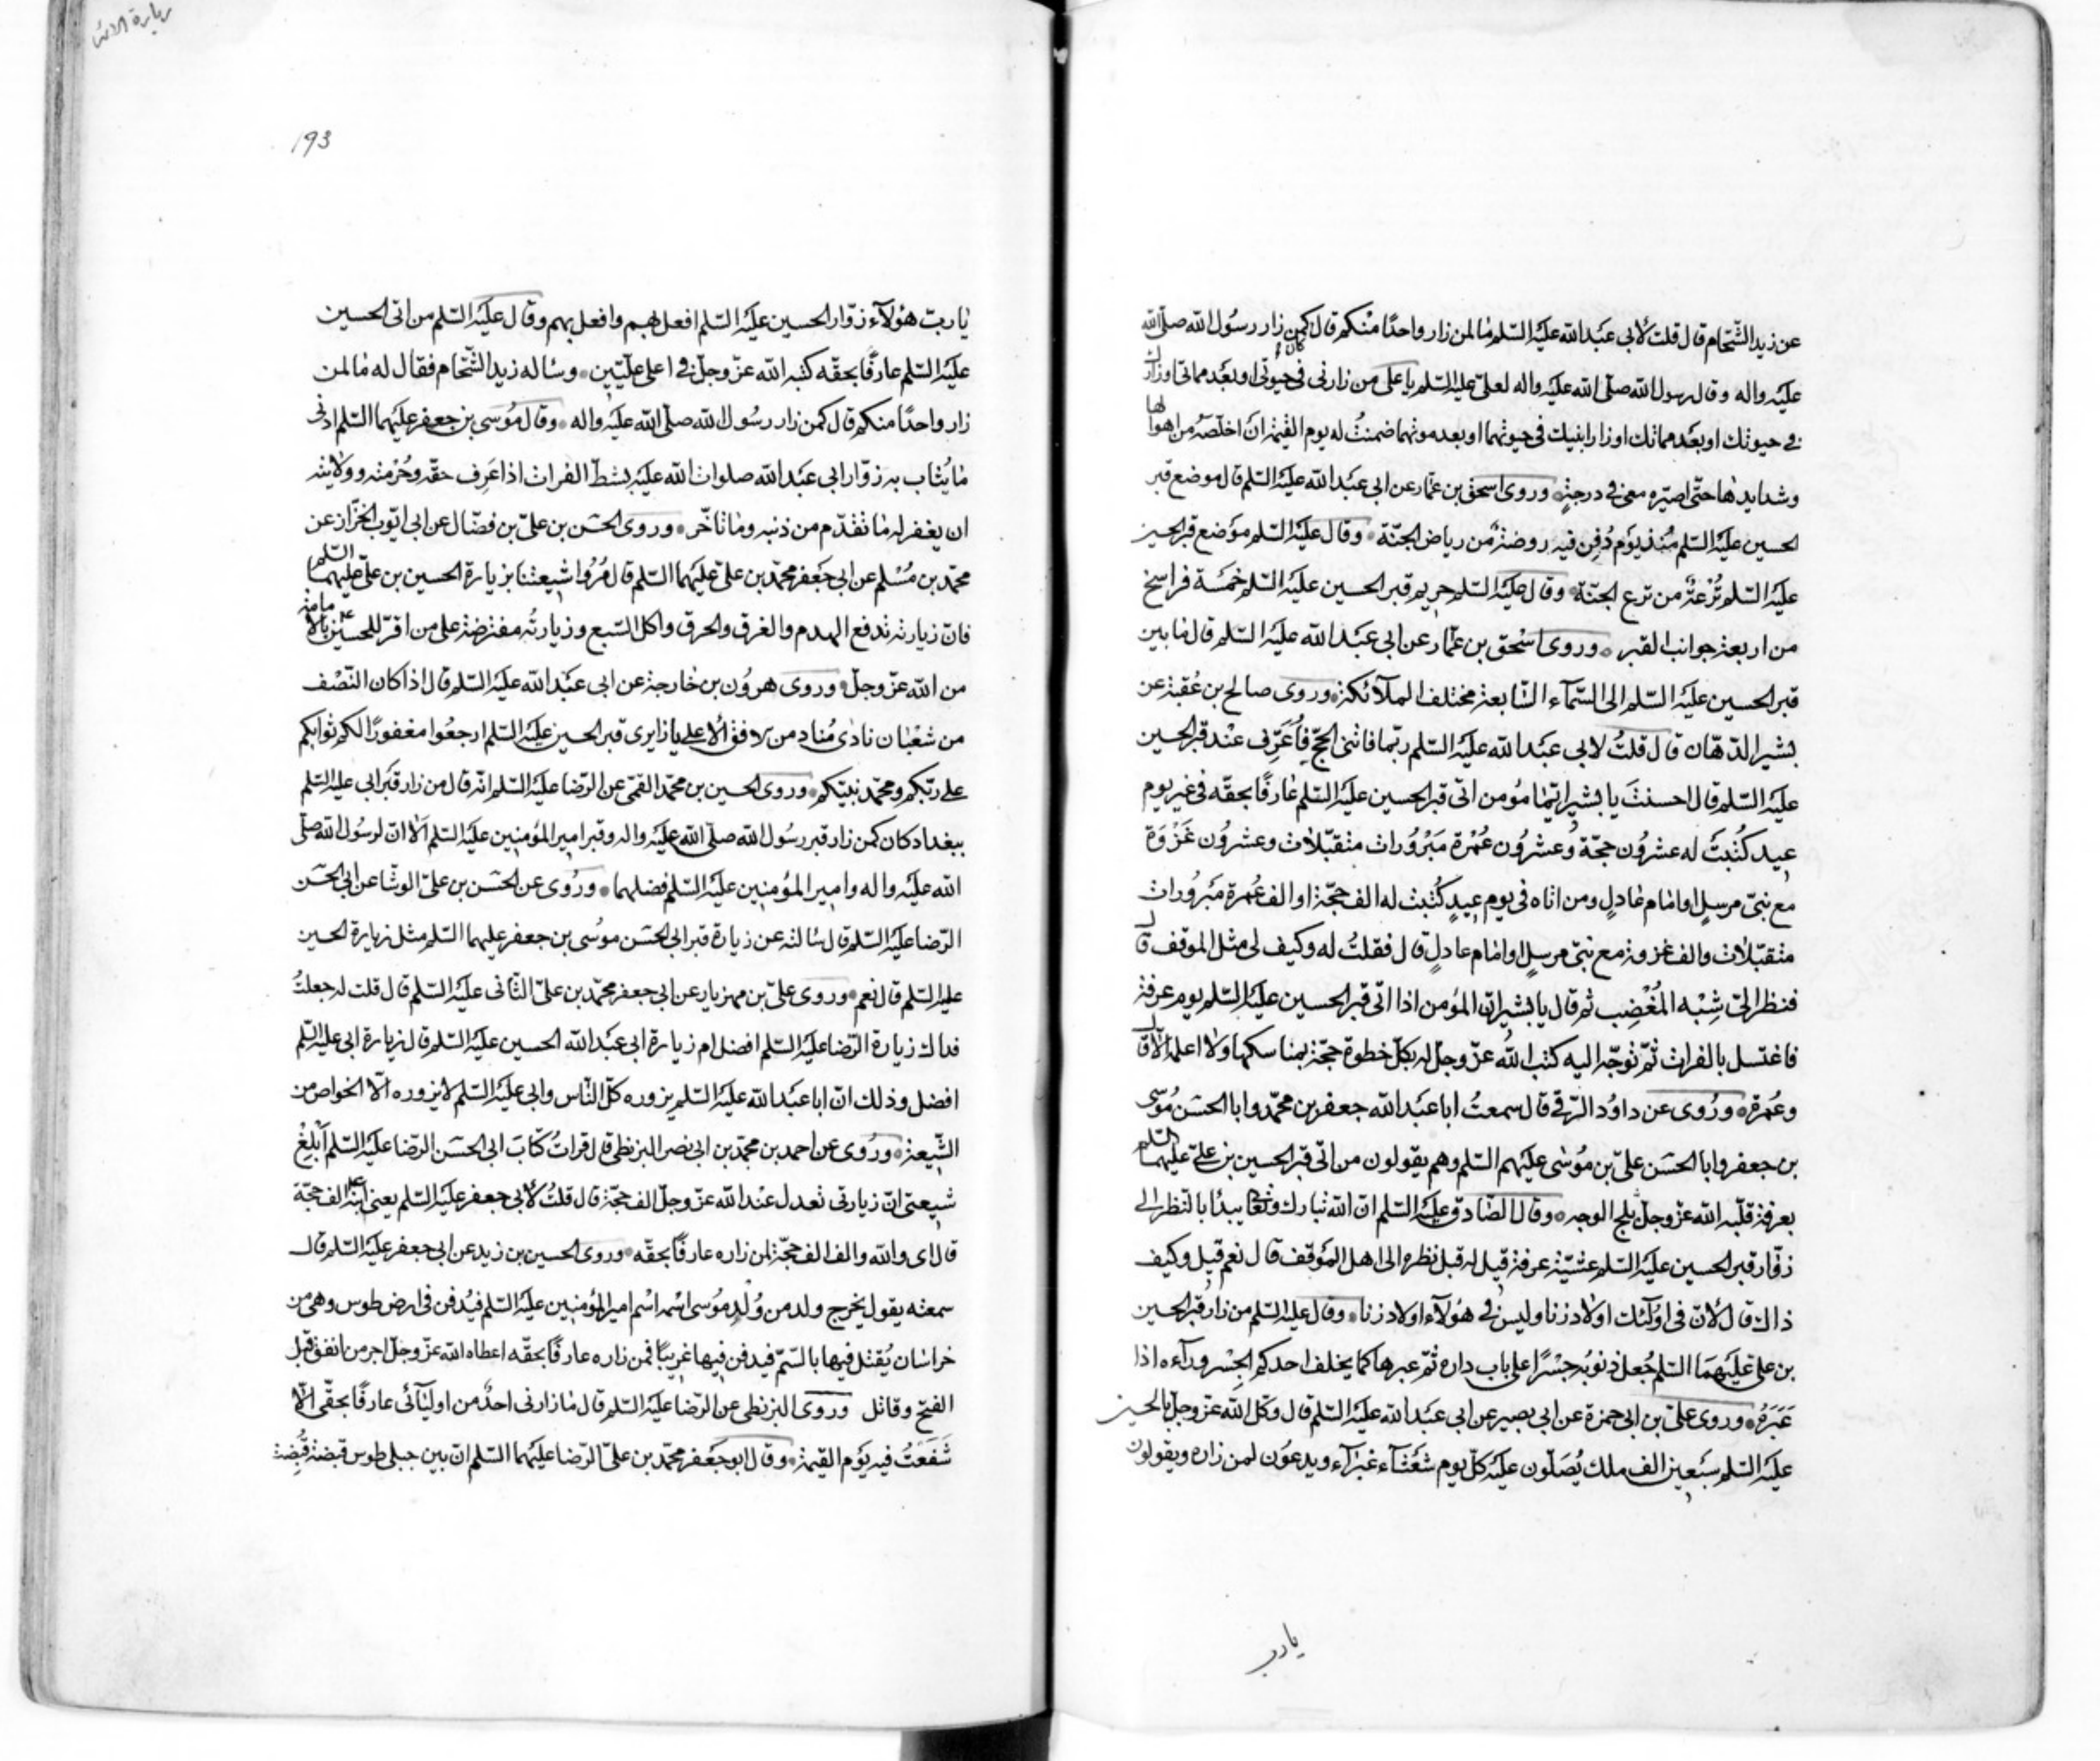 عن زيد الشّحام قال قلت لأبي عبد الله عليه السّلم ما لمن زار واحدًا منكم قال كمن زار رسول الله صلّى الله
عليه واله وقال رسول الله صلّى الله عليه واله لعلىّ عليه السّلم يا على من زارنى فى حيوتى او بعد مماتى او زارك
فى حيوتك او بعد مماتك او زار ابنيك فى حيوتهما او بعد موتهما ضمنتُ له يوم القيمة ان اخلّصه من اهوالها
وشدايدها حتّى اصيّره معى فى درجتى وروى اسحق بن عمّار عن ابى عبد الله عليه السّلم قال موضع قبر
الحسين عليه السّلم مُنذ يوم دُفِن فيه روضة من رياض الجنّة وقال عليه السّلم موضع قبر الحسين
عليه السّلم تُرعةٌ من ترع الجنّة وقال عليه السّلم حريم قبر الحسين عليه السّلم خمسة فراسخ
من اربعة جوانب القبر وروى اسحق بن عمّار عن ابى عبد الله عليه السّلم قال ما بين
قبر الحسين عليه السّلم الى السّمآء السّابعة مختلف الملآئكة وروى صالح بن عُقبة عن
بشير الدّهّان قال قلتُ لابى عبد الله عليه السّلم ربّما فاتنى الحجّ فأُعَرِّف عند قبر الحسين
عليه السّلم قال احسنتَ يا بشير ايّما مؤمن اتى قبر الحسين عليه السّلم عارفًا بحقّه فى غير يوم
عيد كُتبتْ له عشرون حجّة وعشرون عُمْرة مَبْرُورات متقبّلات وعشرون غَزْوَة
مع نبىّ مرسلٍ او امام عادلٍ ومن اتاه فى يوم عيدٍ كُتبت له الف حجّة او الف عُمرة مبرورات
متقبّلات والف غزوة مع نبىّ مرسلٍ او امام عادلٍ قال فقلتُ له وكيف لى مثل الموقف قال
فنظر الىّ شِبْه المُغْضِب ثم قال يا بشير انّ المؤمن اذا اتى قبر الحسين عليه السّلم يوم عرفة
فاغتسل بالفرات ثمّ توجّه اليه كتب الله عزّ وجلّ له بكلّ خطوة حجّة بمناسكها ولا اعلمه الّا قال
وعُمرة وروى عن داود الرّقى قال سمعتُ ابا عبد الله جعفر بن محمّد وابا الحسن موسى
بن جعفر وابا الحسن علىّ بن موسى عليهم السّلم وهم يقولون من اتى قبر الحسين بن علىّ عليهما السّلم
بعرفة قلّبه الله عزّ وجلّ ثلج الوجه وقال الصّادق عليه السّلم انّ الله تبارك وتعالى يبدأ بالنّظر الى
زوّار قبر الحسين عليه السّلم عشيّة عرفة قيل له قبل نظره الى اهل الموقف قال نعم قيل وكيف
ذاك قال لانّ فى اولئك اولاد زنا وليس فى هؤلآء اولاد زنا وقال عليه السّلم من زار قبر الحسين
بن على عليهما السّلم جُعل ذنوبُه جسْرًا على باب داره ثمّ عبرها كما يخلف احدكم الجِسْر ورآءه اذا
عَبَرَهُ وروى علىّ بن ابى حمزة عن ابى بصير عن ابى عبد الله عليه السّلم قال وكّل الله عزّ وجلّ بالحسين
عليه السّلم سبعين الف ملك يُصَلّون عليه كلّ يوم شُعْثآء غبرآء ويدعون لمن زاره ويقولون
يا رب
زيارة
193
يا ربّ هؤلآء زوّار الحسين عليه السّلم افعل بهم وافعل بهم وقال عليه السّلم من اتى الحسين
عليه السّلم عارفًا بحقّه كتبه الله عزّ وجلّ فى اعلى علّيّين وسأله زيد الشّحّام فقال له ما لمن
زار واحدًا منكم قال كمن زار رسول الله صلّى الله عليه واله وقال موسى بن جعفر عليهما السّلم ادنى
ما يُثاب به زوّار ابى عبد الله صلوات الله عليه بشطّ الفرات اذا عَرف حقّه وحُرْمته وولايته
ان يغفر له ما تقدّم من ذنبه وما تأخّر وروى الحسن بن علىّ بن فضّال عن ابى ايّوب الخزّاز عن
محمّد بن مُسْلم عن ابى جعفر محمّد بن علىّ عليهما السّلم قال مُرُوا شيعتنا بزيارة الحسين بن علىّ عليهما السّلم
فانّ زيارته تدفع الهدم والغرق والحرق واكل السّبع وزيارتُه مفترضة على من اقرّ للحسين ع بالامامة
من الله عزّ وجلّ وروى هرون بن خارجة عن ابى عبد الله عليه السّلم قال اذا كان النّصْف
من شعْبان نادى مُنادٍ من الافق الاعلى يا زايرى قبر الحسين عليه السّلم ارجعوا مغفورًا لكم ثوابكم
على ربّكم ومحمّد نبيّكم وروى الحسين بن محمّد القمّى عن الرّضا عليه السّلم انّه قال من زار قبر ابى عليه السّلم
ببغداد كان كمن زار قبر رسول الله صلّى الله عليه واله وقبر امير المؤمنين عليه السّلم الّا انّ لرسول الله صلّى
الله عليه واله وامير المؤمنين عليه السّلم فضلهما وروى عن الحسن بن علىّ الوشّا عن ابى الحسن
الرّضا عليه السّلم قال سألته عن زيارة قبر ابى الحسن موسى بن جعفر عليهما السّلم مثل زيارة الحسين
عليه السّلم قال نعم وروى علىّ بن مهزيار عن ابى جعفر محمّد بن علىّ الثّانى عليه السّلم قال قلت له جعلتُ
فداك زيارة الرّضا عليه السّلم افضل ام زيارة ابى عبد الله الحسين عليه السّلم قال زيارة ابى عليه السّلم
افضل وذلك انّ ابا عبد الله عليه السّلم يزوره كلّ النّاس وابى عليه السّلم لا يزوره الّا الخواص من
الشّيعة وروى عن احمد بن محمّد بن ابى نصر البزنطى قال قرأتُ كتابَ ابى الحسن الرّضا عليه السّلم أَبْلِغْ
شيعتى انّ زيارتى تعدل عند الله عزّ وجلّ الف حجّة قال قلتُ لابى جعفر عليه السّلم يعنى ابنه ع الف حجّة
قال اى والله والف الف حجّة لمن زاره عارفًا بحقّه وروى الحسين بن زيد عن ابى جعفر عليه السّلم قال
سمعته يقول يخرج ولد من وُلْد موسى اسمه اسْم امير المؤمنين عليه السّلم فيُدفن فى ارض طوس وهى من
خراسان يُقتل فيها بالسّمّ فيدفن فيها غريبًا فمن زاره عارفًا بحقّه اعطاه الله عزّ وجلّ اجر من انفق قبل
الفتح وقاتل وروى البزنطى عن الرّضا عليه السّلم قال ما زارنى احدٌ من اوليآئى عارفًا بحقّى الّا
شَفَعتُ فيه يوم القيمة وقال ابو جعفر محمّد بن علىّ الرّضا عليهما السّلم انّ بين جبلى طوس قبضة قُبِضت